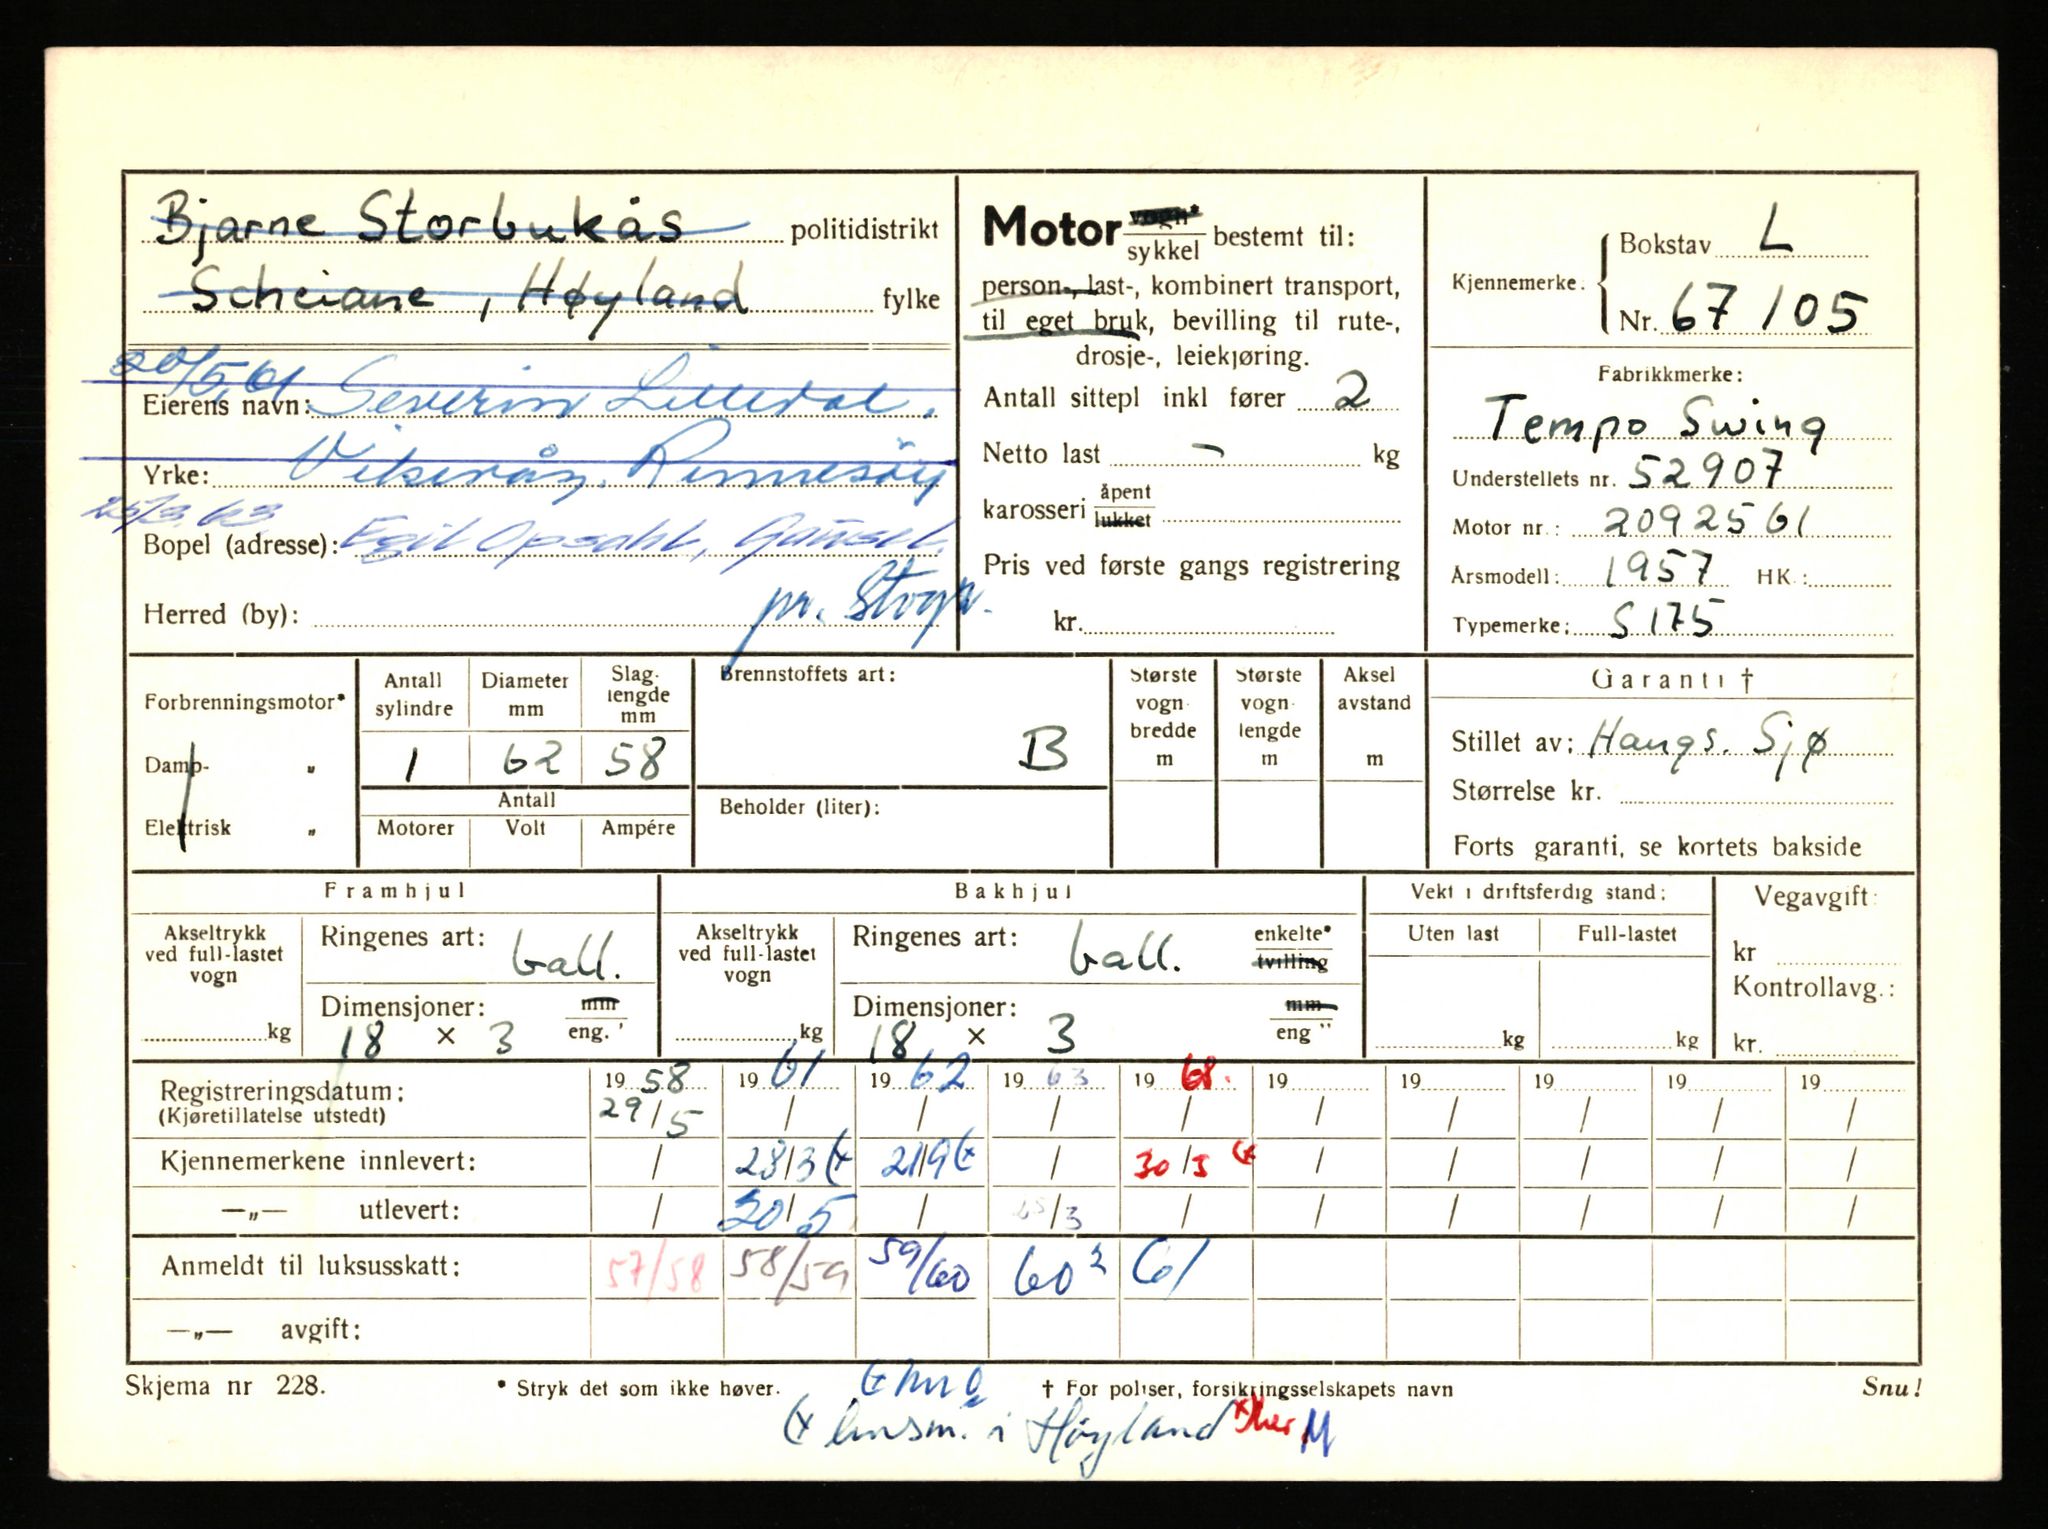 Bjarne Storbukås politidistrikt
Scheiane, Høyland fylke
20/5.61
Eierens navn: Severin Lilledal,
Yrke: Vikevåg. Rennesöy
25/3.63
Bopel (adresse): Egil Opsahl, Gausel,
pr. Stvgr.
Herred (by):
Motor vogn*/sykkel bestemt til:
person-, last-, kombinert transport,
til eget bruk, bevilling til rute-,
drosje-, leiekjøring.
Antall sittepl inkl fører 2
Netto last - kg
karosseri åpent/lukket
Pris ved første gangs registrering
kr.
Kjennemerke: Bokstav L
Nr. 67105
Fabrikkmerke:
Tempo Swing
Understellets nr. 52907
Motor nr.: 2092561
Årsmodell: 1957 HK:
Typemerke: S 175
Forbrenningsmotor*
Damp- „
Elektrisk „
Antall sylindre Diameter mm Slag-lengde mm
1 62 58
Antall
Motorer Volt Ampére
Brennstoffets art:
B
Beholder (liter):
Største vogn bredde m
Største vogn lengde m
Aksel avstand m
Garanti †
Stillet av: Haugs. Sjø
Størrelse kr.
Forts garanti, se kortets bakside
Framhjul
Akseltrykk ved full-lastet vogn
kg
Ringenes art: ball.
Dimensjoner: mm/eng.'
18 x 3
Bakhjul
Akseltrykk ved full-lastet vogn
kg
Ringenes art: ball. enkelte*/tvilling
Dimensjoner: mm/eng"
18 x 3
Vekt i driftsferdig stand:
Uten last Full-lastet
kg kg
Vegavgift:
kr
Kontrollavg.:
kr.
Registreringsdatum: 19 58 19 61 19 62 19 63 19 68. 19 19 19 19 19
(Kjøretillatelse utstedt) 29/5 / / / / / / / / /
Kjennemerkene innlevert: / 28/3 (x 21/9 (x / 30/3 (x / / / / /
—„— utlevert: / 20/5 / 25/3 / / / / / /
Anmeldt til luksusskatt: 57/58 58/59 59/60 60² 61
—„— avgift:
Skjema nr 228.
* Stryk det som ikke høver.
† For poliser, forsikringsselskapets navn
Snu!
(x lensm. i Høyland x) her M